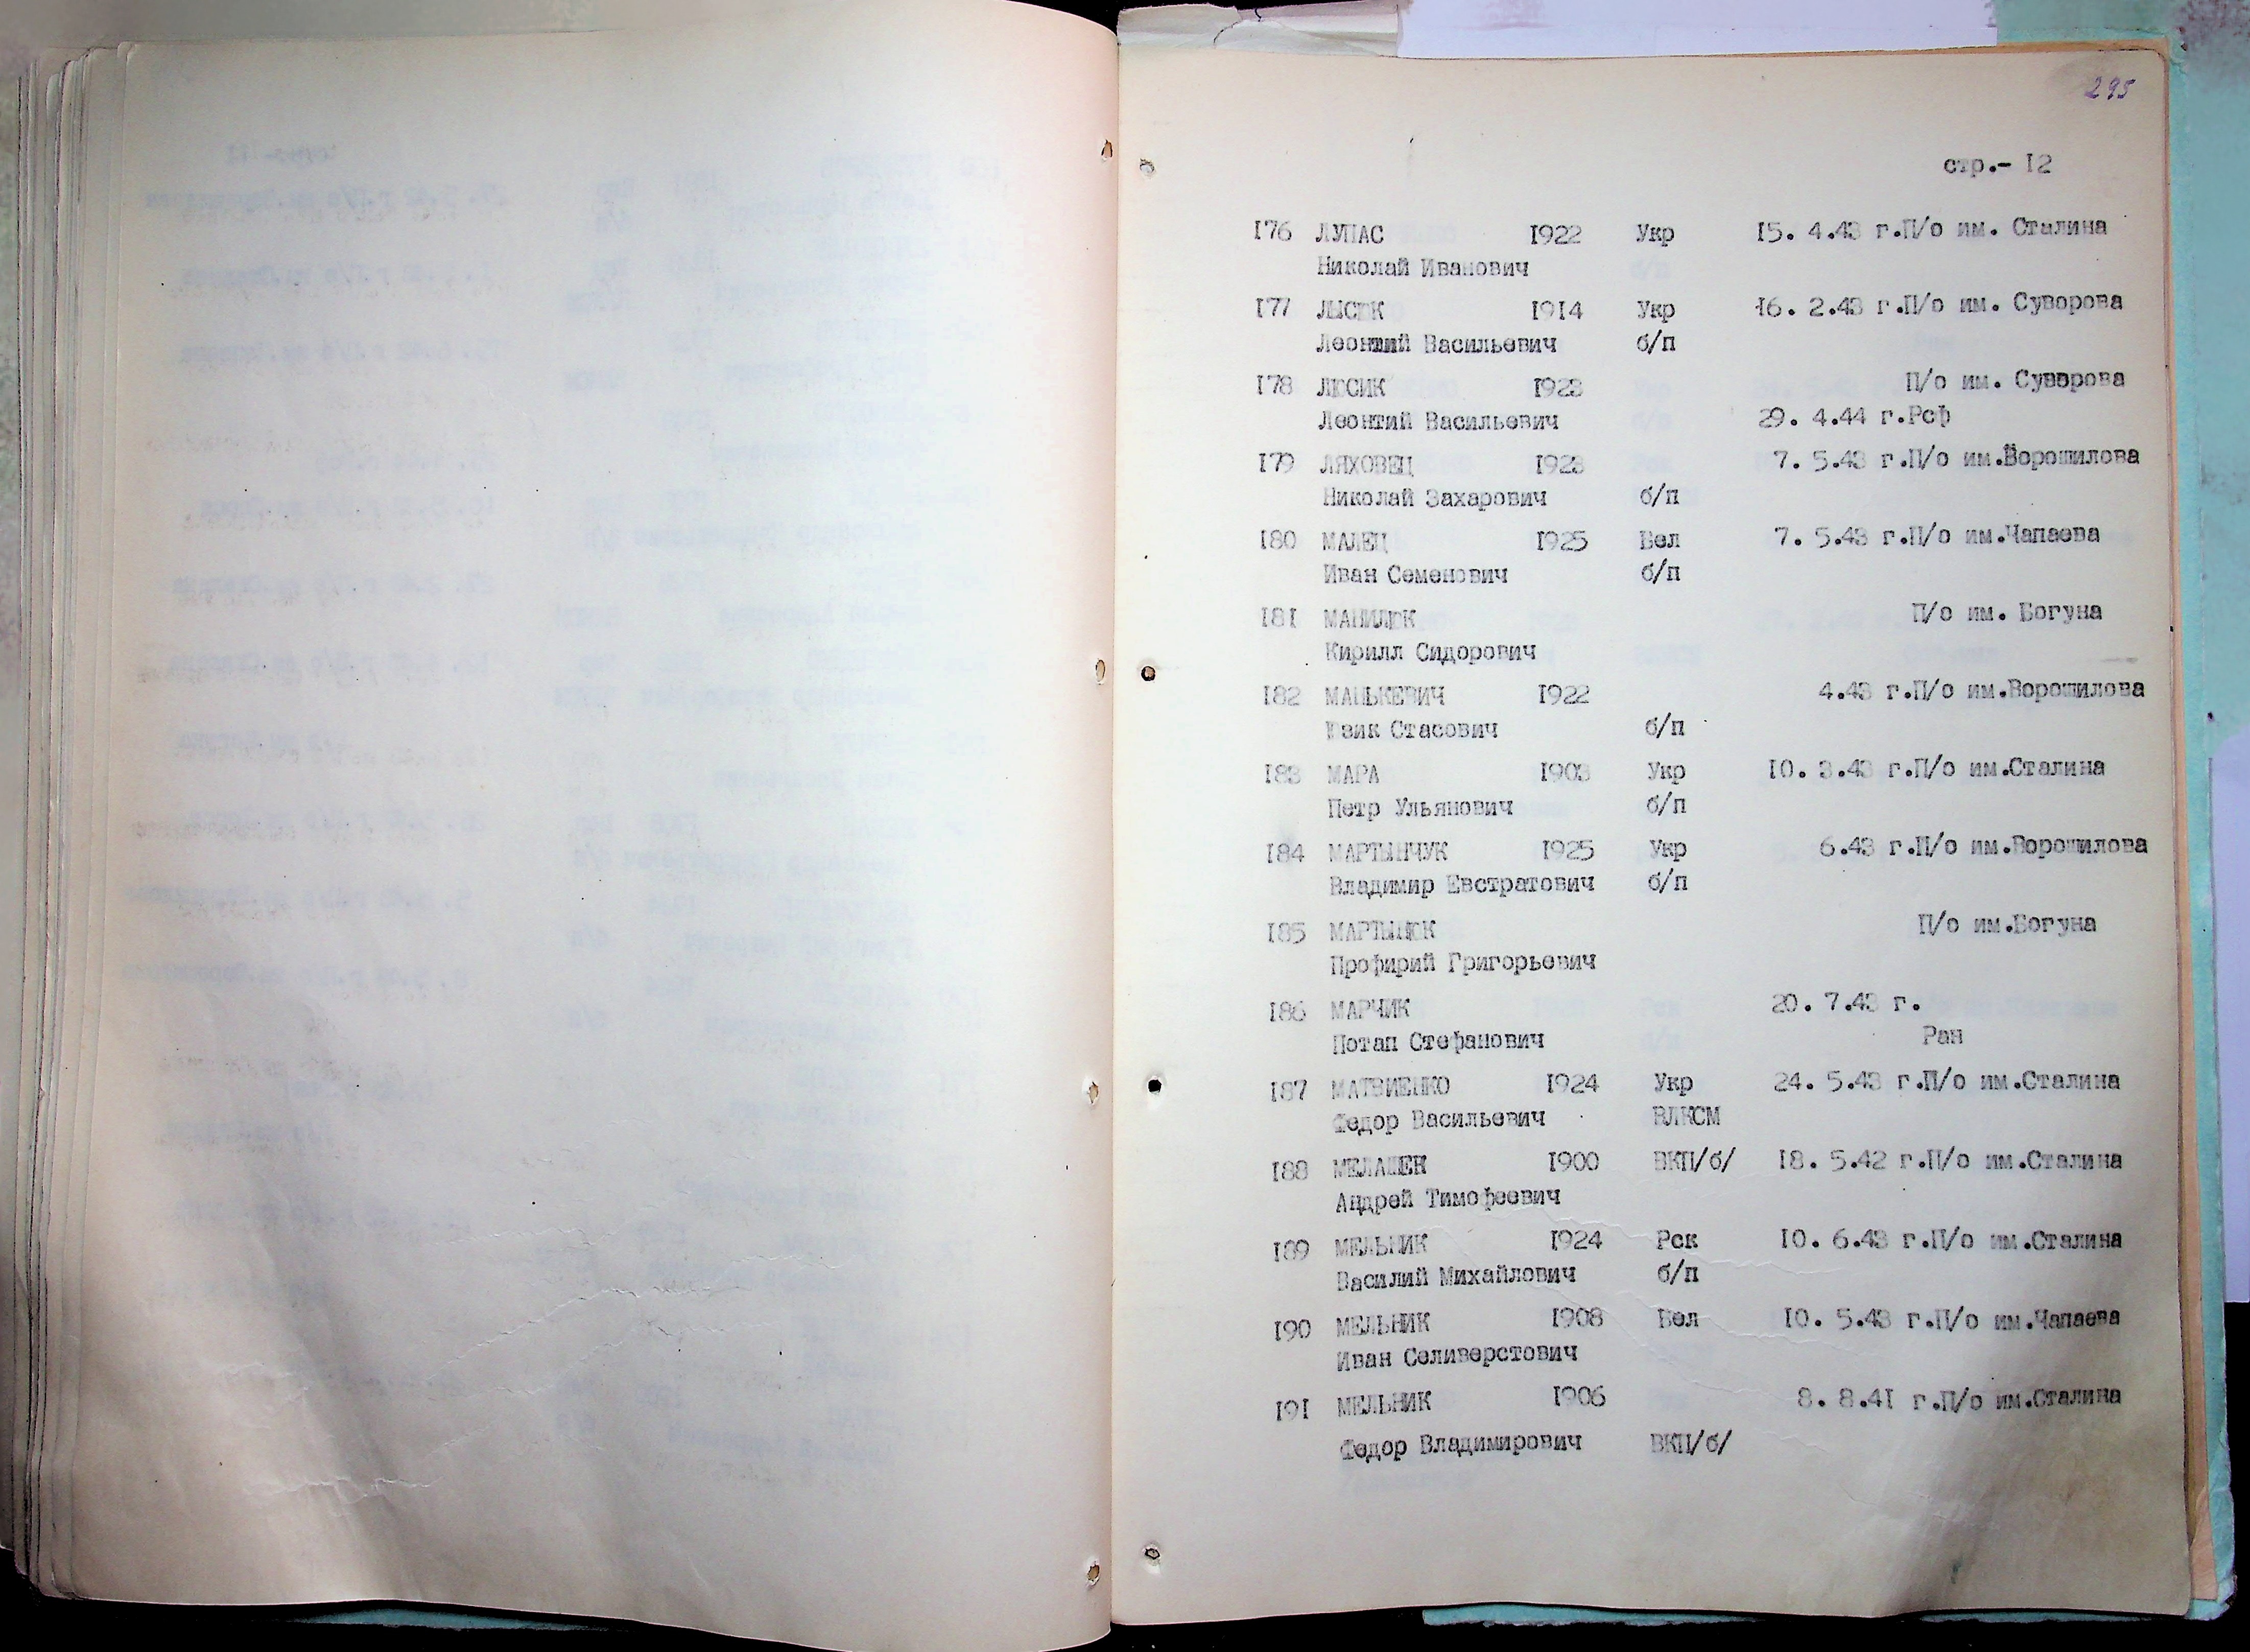 295
стр.- I2
I76 ЛУПАС I922 Укр I5. 4.43 г.П/о им. Сталина
Николай Иванович
I77 ЛЫСЮК I9I4 Укр I6. 2.43 г.П/о им. Суворова
Леонтий Васильевич б/п
I78 ЛЮСИК I923 П/о им. Суворова
Леонтий Васильевич 29. 4.44 г.Рсф
I79 ЛЯХОВЕЦ I923 7. 5.43 г.П/о им.Ворошилова
Николай Захарович б/п
I80 МАЛЕЦ I925 Бел 7. 5.43 г.П/о им.Чапаева
Иван Семенович б/п
I8I МАНИЛЮК П/о им. Богуна
Кирилл Сидорович
I82 МАНЬКЕВИЧ I922 4.43 г.П/о им.Ворошилова
Юзик Стасович б/п
I83 МАРА I903 Укр I0. 3.43 г.П/о им.Сталина
Петр Ульянович б/п
I84 МАРТЫНЧУК I925 Укр 6.43 г.П/о им.Ворошилова
Владимир Евстратович б/п
I85 МАРТЫНЮК П/о им.Богуна
Профирий Григорьевич
I86 МАРЧИК 20. 7.43 г.
Потап Стефанович Ран
I87 МАТВИЕНКО I924 Укр 24. 5.43 г.П/о им.Сталина
Федор Васильевич ВЛКСМ
I88 МЕЛАШЕН I900 ВКП/б/ I8. 5.42 г.П/о им.Сталина
Андрей Тимофеевич
I89 МЕЛЬНИК I924 Рск I0. 6.43 г.П/о им.Сталина
Василий Михайлович б/п
I90 МЕЛЬНИК I908 Бел I0. 5.43 г.П/о им.Чапаева
Иван Селиверстович
I9I МЕЛЬНИК I906 8. 8.4I г.П/о им.Сталина
Федор Владимирович ВКП/б/